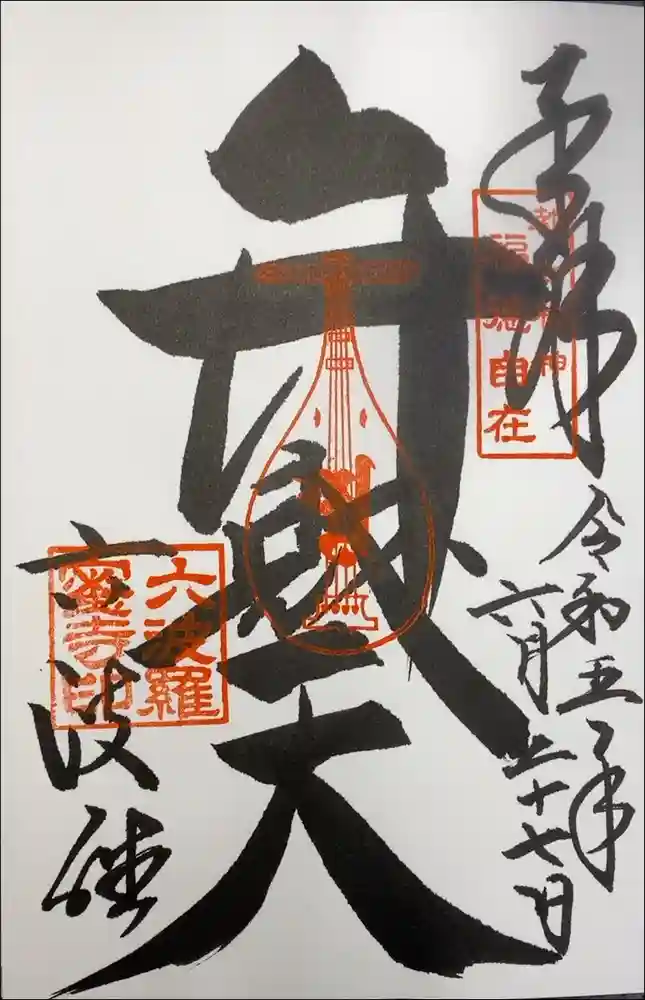 奉拝
都七福神
福徳自在
令和五年
六月二十七日
弁財天
六波羅
蜜寺印
六波羅